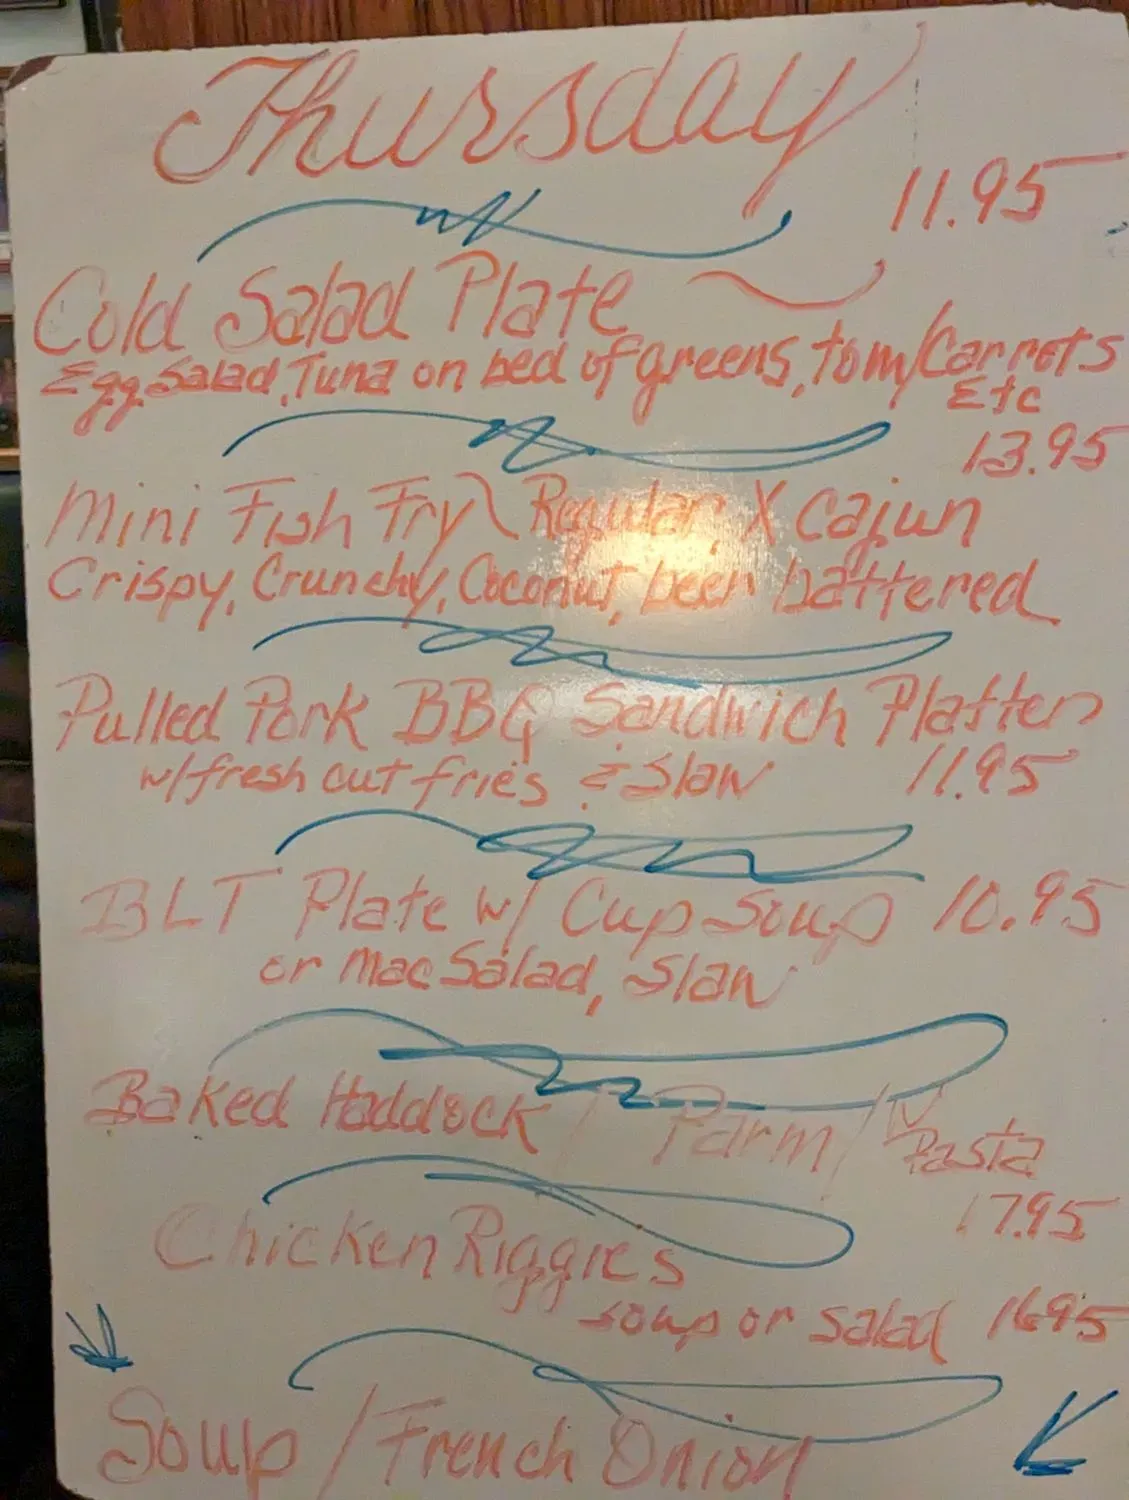 Thursday
11.95
Cold Salad Plate
Egg Salad, Tuna on bed of greens, tom/Carrots
Etc
13.95
Mini Fish Fry Regular, X Cajun
Crispy, Crunchy, Coconut, beer battered
Pulled Pork BBQ Sandwich Platter
w/fresh cut fries & Slaw 11.95
BLT Plate w/ Cup Soup 10.95
or Mac Salad, Slaw
Baked Haddock / Parm / w Pasta
17.95
Chicken Riggies
soup or salad 16.95
Soup / French Onion